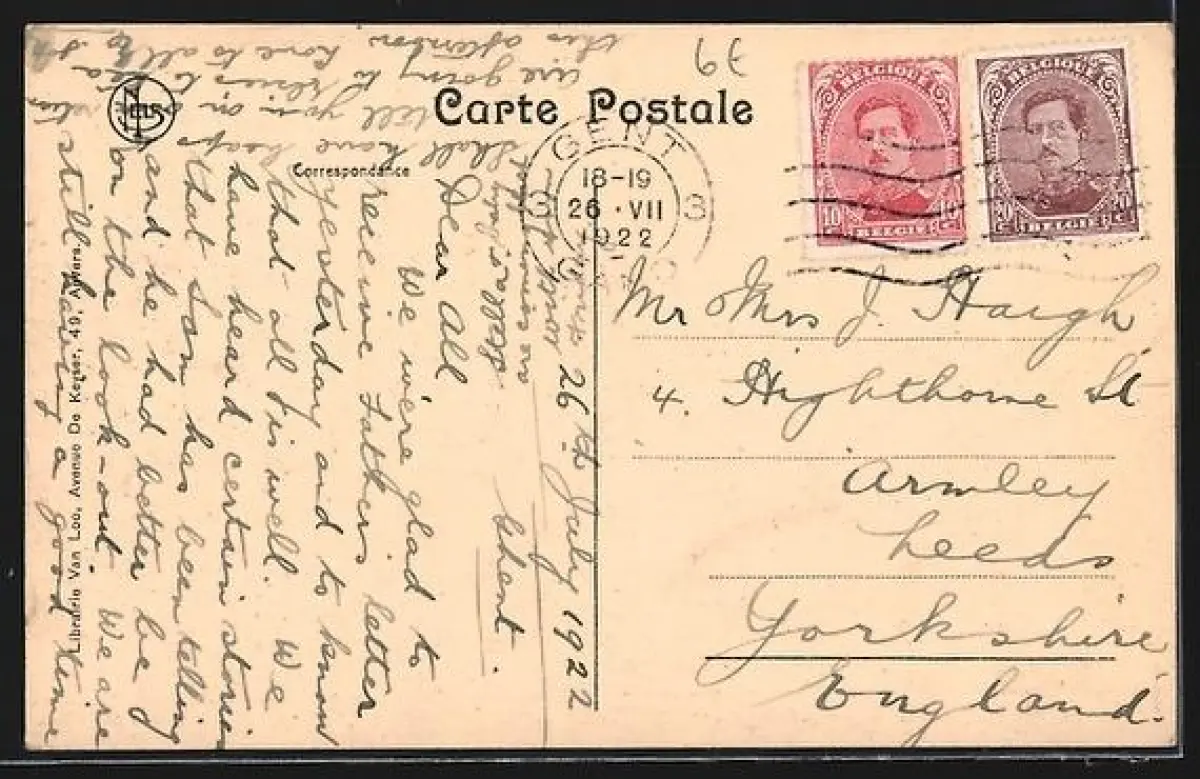 Carte Postale
Correspondance
NELS
Librairie Van Loo, Avenue De Keyser, 49, Anvers
39
BELGIQUE
10 C 10 C
BELGIË
BELGIQUE
20 C 20 C
BELGIË
GENT
18-19
26 · VII
1922
3 3
GAND
26th July 1922
Ghent.
Dear All
We were glad to
receive Fathers letter
yesterday and to know
that all is well. We
have heard certain stories
that Sam has been telling
and he had better be
on the look-out. We are
still having a good time
shall have heaps
to tell you on
are going to
this afternoon. Love to all
Mr & Mrs J. Haigh
4. Highthorne St
Armley
Leeds
Yorkshire
England.